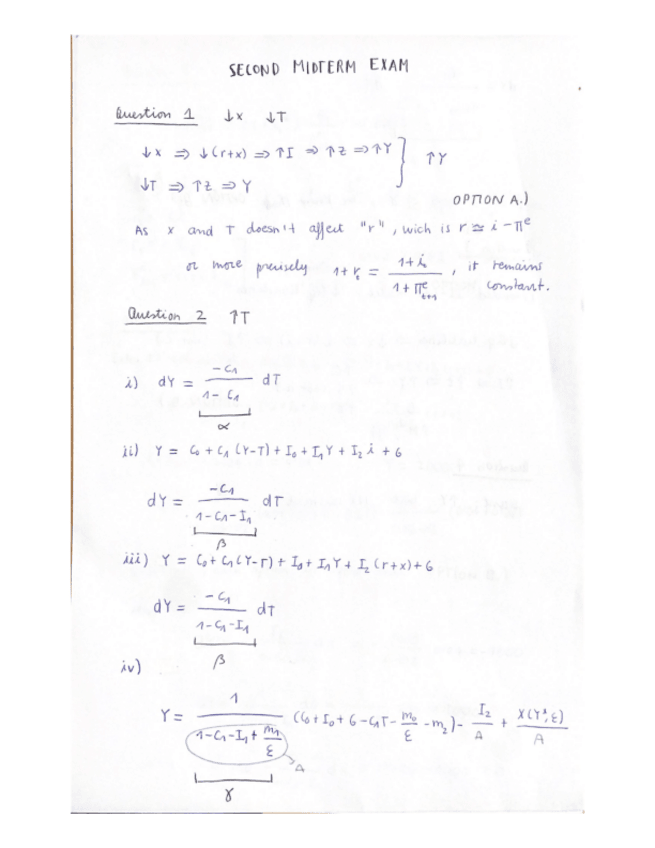 SECOND MIDTERM EXAM
Question 1 ↓x ↓T
↓x ⇒ ↓(r+x) ⇒ ↑I ⇒ ↑Z ⇒ ↑Y } ↑Y
↓T ⇒ ↑Z ⇒ Y
OPTION A.)
As x and T doesn't affect "r", wich is r ≃ i - πᵉ
or more precisely 1 + rₜ = (1 + iₜ) / (1 + πᵉₜ₊₁), it remains constant.
Question 2 ↑T
i) dY = (-C₁) / (1 - C₁) dT
α
ii) Y = C₀ + C₁ (Y-T) + I₀ + I₁Y + I₂ i + G
dY = (-C₁) / (1-C₁-I₁) dT
β
iii) Y = C₀ + C₁(Y-T) + I₀ + I₁Y + I₂ (r+x) + G
dY = (-C₁) / (1-C₁-I₁) dT
β
iv)
Y = 1 / (1-C₁-I₁ + m₁/ε) (C₀ + I₀ + G - C₁T - m₀/ε - m₂) - I₂/A + X(Y*, ε)/A
A
γ